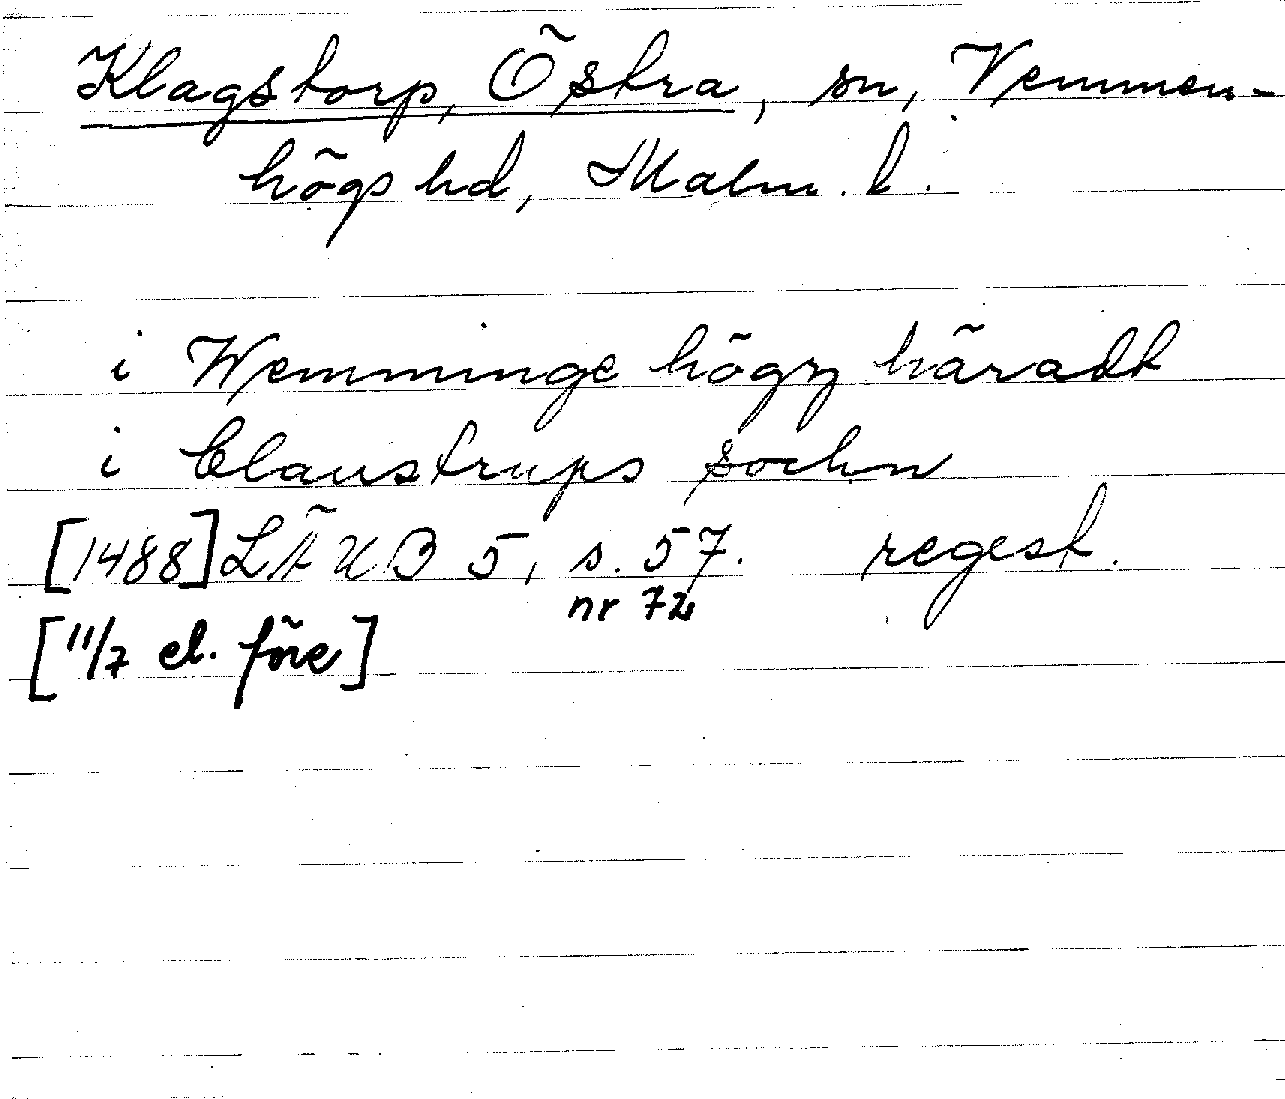 Klagstorp, Östra, sn, Vemmen-
högs hd, Malm. l.
i Wemminge högz häradt
i Claustrups sochn
[1488] LÄUB 5, s. 57. regest.
nr 72
[11/7 el. före]